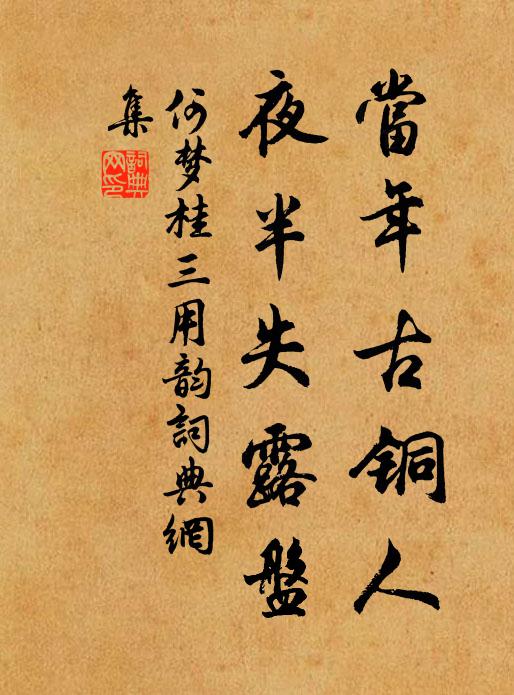 當年古銅人
夜半失露盤
何梦桂三用韵詞典網
集
詞典網印